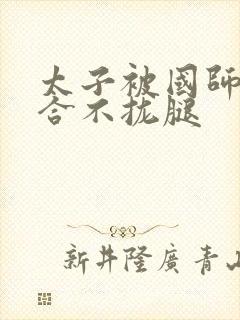 太子被國師
合不拢腿
新井隆廣青山